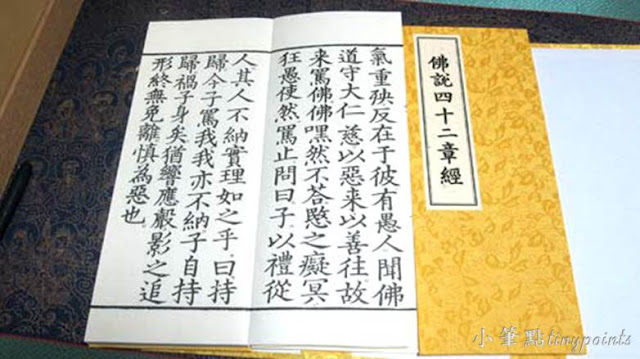 佛說四十二章經
氣重殃反在于彼有愚人聞佛
道守大仁慈以惡来以善往故
来罵佛佛嘿然不答愍之癡冥
狂愚使然罵止問曰子以禮從
人其人不納實理如之乎曰持
歸今子罵我我亦不納子自持
歸禍子身矣猶響應聲影之追
形終無免離慎為惡也
小筆點tinypoints